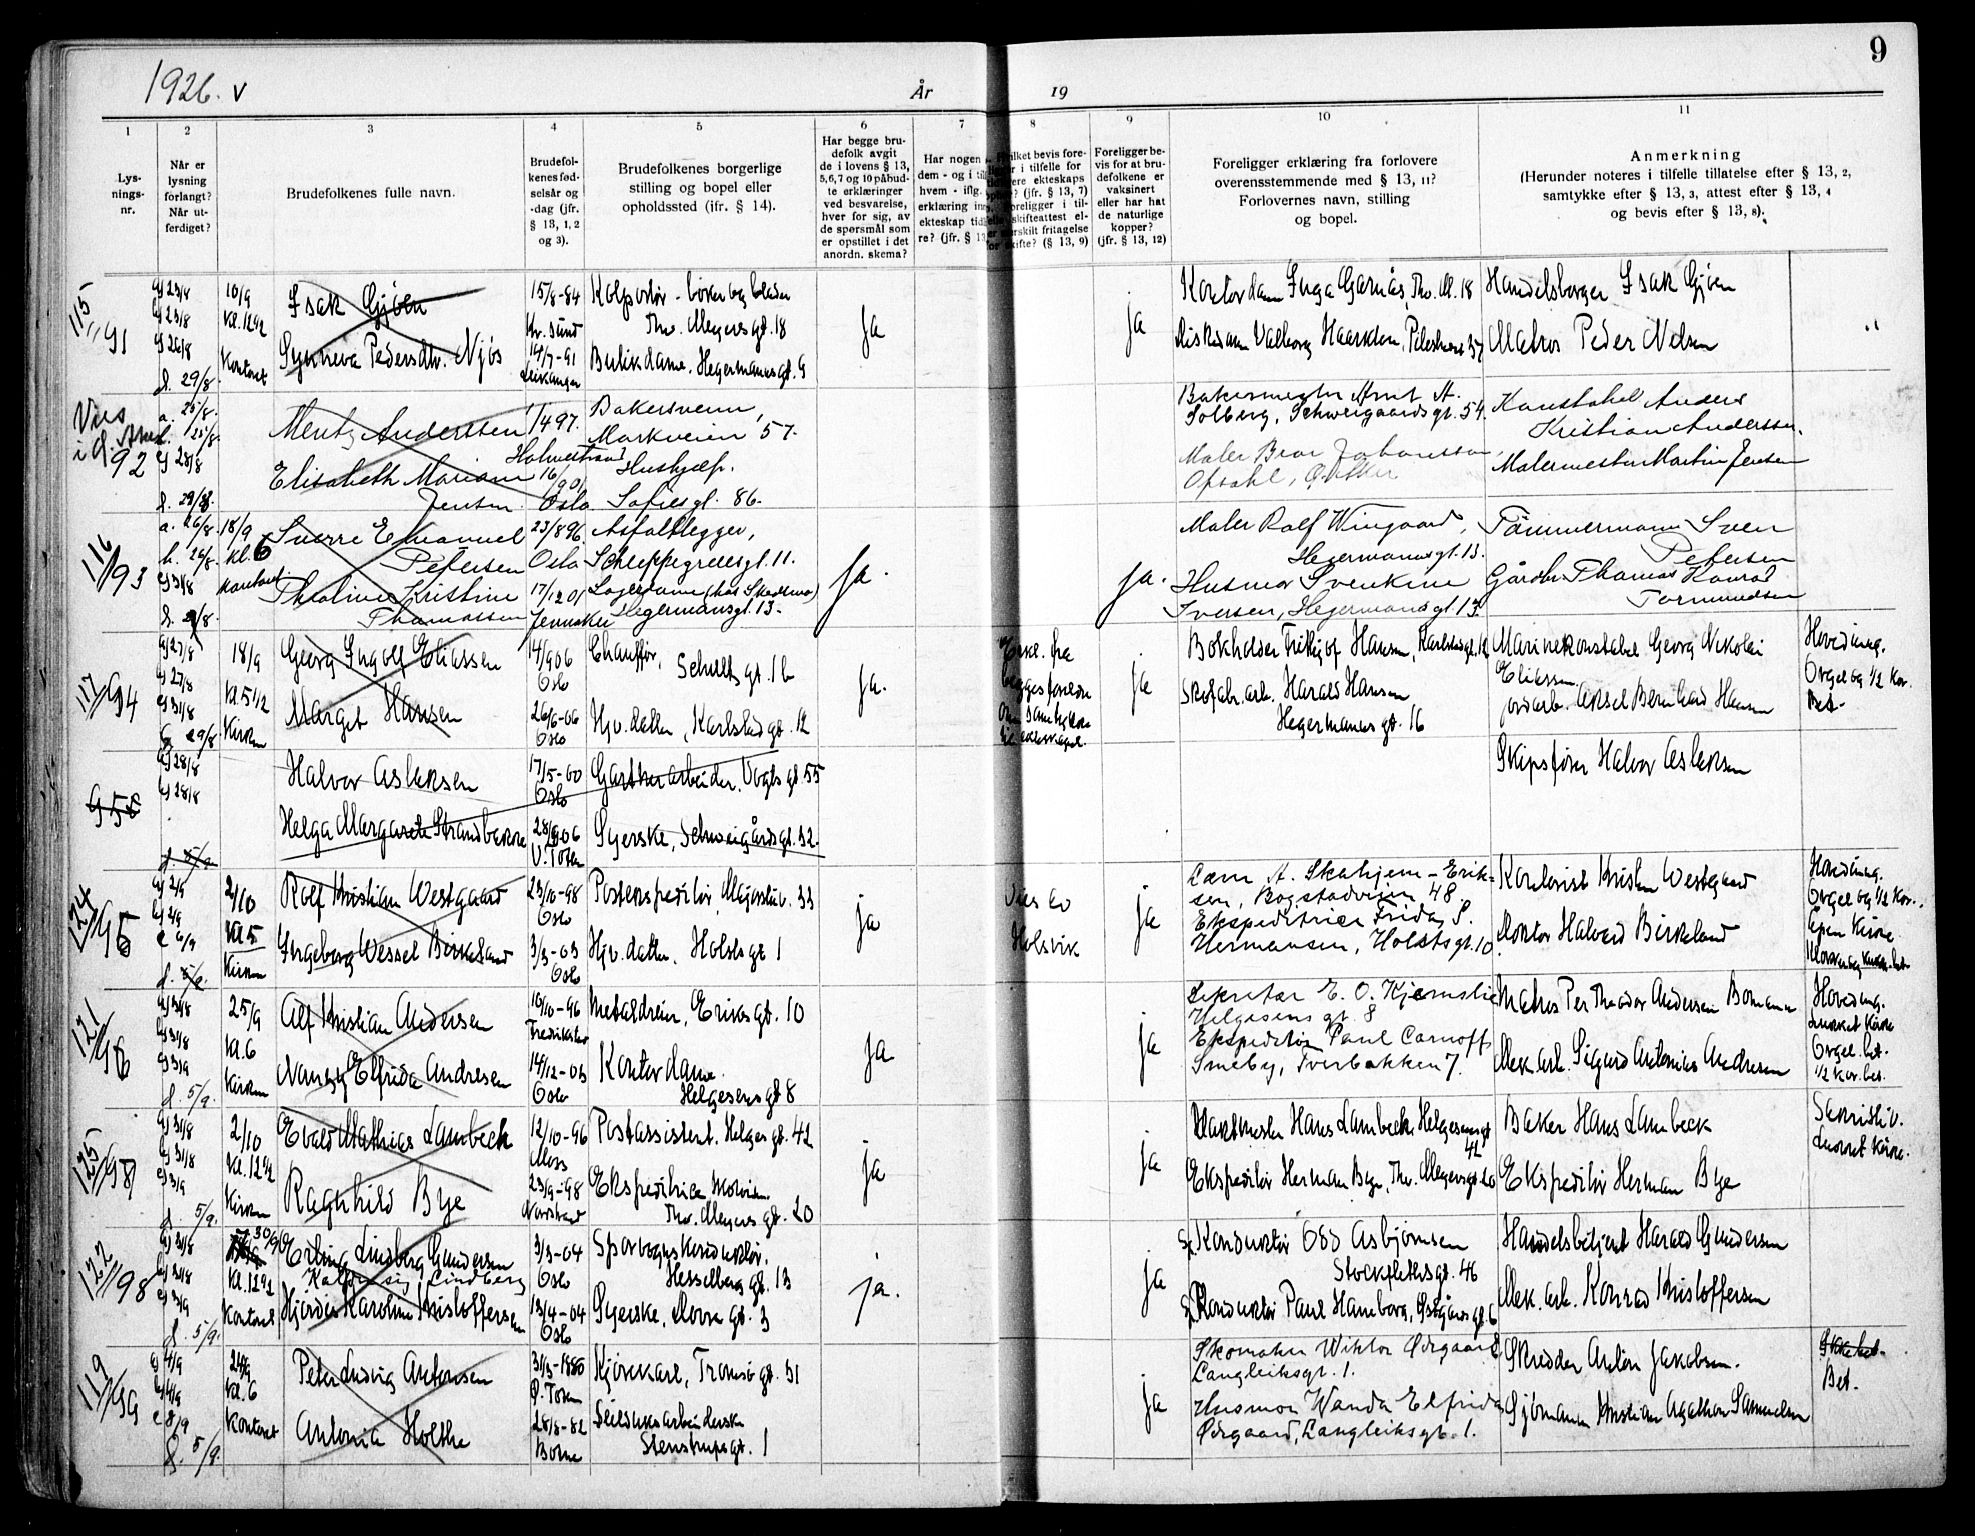 9
1926. v
År
19
1
2
3
4
5
6
7
8
9
10
11
Lys-
nings-
nr.
Når er
lysning
forlangt?
Når ut-
ferdiget?
Brudefolkenes fulle navn.
Brudefol-
kenes fød-
selsår og
-dag (jfr.
§ 13, 1, 2
og 3).
Brudefolkenes borgerlige
stilling og bopel eller
opholdssted (ifr. § 14).
Har begge bru-
defolk avgit
de i lovens § 13,
5,6,7 og 10 påbud-
te erklæringer
ved besvarelse,
hver for sig, av
de spørsmål som
er opstillet i det
anordn. skema?
Har nogen
dem - og i
hvem - iflg.
erklæring
ekteskap
re? (jfr. § 13
bevis fore-
i tilfelle for
ekteskaps
(jfr. § 13, 7)
foreligger i til-
skifteattest el-
fritagelse
skifte? (§ 13, 9)
Foreligger be-
vis for at bru-
defolkene er
vaksinert
eller har hat
de naturlige
kopper?
(jfr. § 13, 12)
Foreligger erklæring fra forlovere
overensstemmende med § 13, 11?
Forlovernes navn, stilling
og bopel.
Anmerkning
(Herunder noteres i tilfelle tillatelse efter § 13, 2,
samtykke efter § 13, 3, attest efter § 13, 4
og bevis efter § 13, 8).
115
91
23/8
23/8
26/8
d. 29/8
10/9
Kl. 12 1/2
Kontoret
Isak Gjöen
Synneva Pedersdtr. Njøs
15/8-84
Kr. sund
14/7-91
Leikanger
Kolportør - bøker og blader
Thv. Meyers gt. 18
Butikdame. Hegermanns gt. 9
Ja
ja
Kontordame Inga Garnås, Thv. M. 18
Valborg
Handelsborger Isak Gjöen
Matros Peder Nelsen
92
a. 25/8
25/8
28/8
d. 29/8
Mentz Anderssen
Elisabeth Marian
Jensen
1/4 97.
Holmestrand
16/9 01
Oslo
Bakersvenn,
Markveien 57.
Hushjælp.
Sofiesgt. 86.
Bakermester Arnt A.
Solberg, Schweigaardsgt. 54.
Maler
Konstabel Anders
Kristian Anderssen.
Malermester Martin Jensen
116
93
a. 26/8
b. 26/8
31/8
18/9
Kl. 6
Kontoret
Sverre Emanuel
Petersen
Kristine
Thomassen
23/8 96
Oslo
17/12 01
Asfaltlegger,
Schleppegrellsgt. 11.
Hegermansgt. 13.
Ja.
ja.
Maler Rolf Wingaard,
Hegermansgt. 13.
Husmor
Iversen, Hegermansgt. 13.
Tömmermann Sven
Petersen
Thomas Konrad
Tormundsen
117
94
27/8
27/8
31/8
29/8
18/9
Kl. 5 1/2
Kirken
Georg Ingolf Eliassen
Marget Hansen
14/9 06
Oslo
26/6-06
Oslo
Chauffør, Schults gt. 16
Hjv. datter, Karlstad gt. 12
ja.
Erkl. fra
begges foreldre
om samtykke
til ekteskapet.
ja
Bokholder Fritjof Hansen,
Skofabr. arb. Harald Hansen
Hegermanns gt. 16
Marinekonstabel Georg Nikolai
Eliassen
jordarb. Aksel Bernhard Hansen
Hovedinng.
Orgel og 1/2 kor.
bet.
95
28/8
28/8
d. 5/9
Halvor Aslaksen
Helga Margarete Strandbakke
17/5-00
Oslo
V. Toten
Gartnerarbeider, Vogts gt. 55
Syerske, Schweigårdsgt. 32.
Skipsfører Halvor Aslaksen
124
95
2/9
2/9
6/9
d. 5/9
2/10
Kl. 5
Kirken
Rolf Kristian Westgaard
Ingeborg Wessel Birkeland
23/10-98
Oslo
3/3-03
Oslo
Postekspeditør, Majorstuv. 33
Hjv. datter. Holsts gt 1
ja
ja
A. Skahjem - Erik-
sen, Bogstadveien 48
Ekspeditrice Frida S.
Hermansen, Holstsgt. 10.
Kontorist Kristen Westgaard
Doktor Halvard Birkeland
Hovedinng.
Orgel og 1/2 kor.
Åpen Kirke
121
96
31/8
31/8
3/9
d. 5/9.
25/9
Kl. 6
Kirken
Alf Kristian Andersen
Nanny Elfrida Andresen
10/10-96
Fredrikstad
14/12-03
Oslo
Metaldreier, Eriks gt. 10
Kontordame.
Helgesens gt 8
Ja
ja
Sekretær E. O. Kjernslie
Helgesens gt. 8
Ekspeditør Paul Carnoff
Smeby, Tverbakken 7.
Matros Per Theodor Andersen Bomann
Mek. arb. Sigurd Antonius Andresen
Hovedinng.
Lukket Kirke
Orgel. bet.
1/2 kor. bet.
125
97
31/8
31/8
3/9
d. 5/9.
2/10
Kl. 12 1/2
Kirken
Evald Mathias Lambeck
Ragnhild Bye
12/10-96
Moss
23/9-98
Nordstrand
Postassistent. Helges gt. 42
Ekspeditrice
Thv. Meyers gt. 20
ja
ja
Vaktmester Hans Lambeck, Helgesens gt
42
Ekspeditør Herman Bye, Thv. Meyers gt 20
Baker Hans Lambeck
Ekspeditør Herman Bye
Sakristi v.
Lukket Kirke.
122
98
31/8
31/8
3/9
d. 5/9.
30/9
Kl. 12 1/2
Kontoret
Erling Lindberg Gundersen
Kalder sig Lindberg
Hjördis Karoline Kristoffersen
3/3-04
Oslo
13/4-04
Oslo
Sporvognskonduktør.
Hesselbergs gt. 13
Syerske, Dovre gt. 3
ja.
ja
Konduktör Odd Asbjørnsen
Stockfleths gt. 46
Konduktör Paul Hamborg,
Handelsbetjent Harald Gundersen
Mek. arb. Konrad Kristoffersen
119
99
4/9
4/9
8/9
d. 5/9.
24/9
Kl. 6
Kontoret
Peter Ludvig Antonsen
Antonia Holthe
31/3-1880
Ø. Toten
28/8-82
Borre
Kjörekarl, Tromsö gt. 31
Seilduksarbeiderske
Stenstrups gt. 1
ja
Skomaker Wiktor Ødegaard
Langleiksgt. 1.
Husmor Wanda Elfrida
Ødegaard, Langleiksgt. 1.
Skredder Anton Jakobsen.
Sjömann Kristian Agathon Samuelsen
Ikke bet.
Bet.